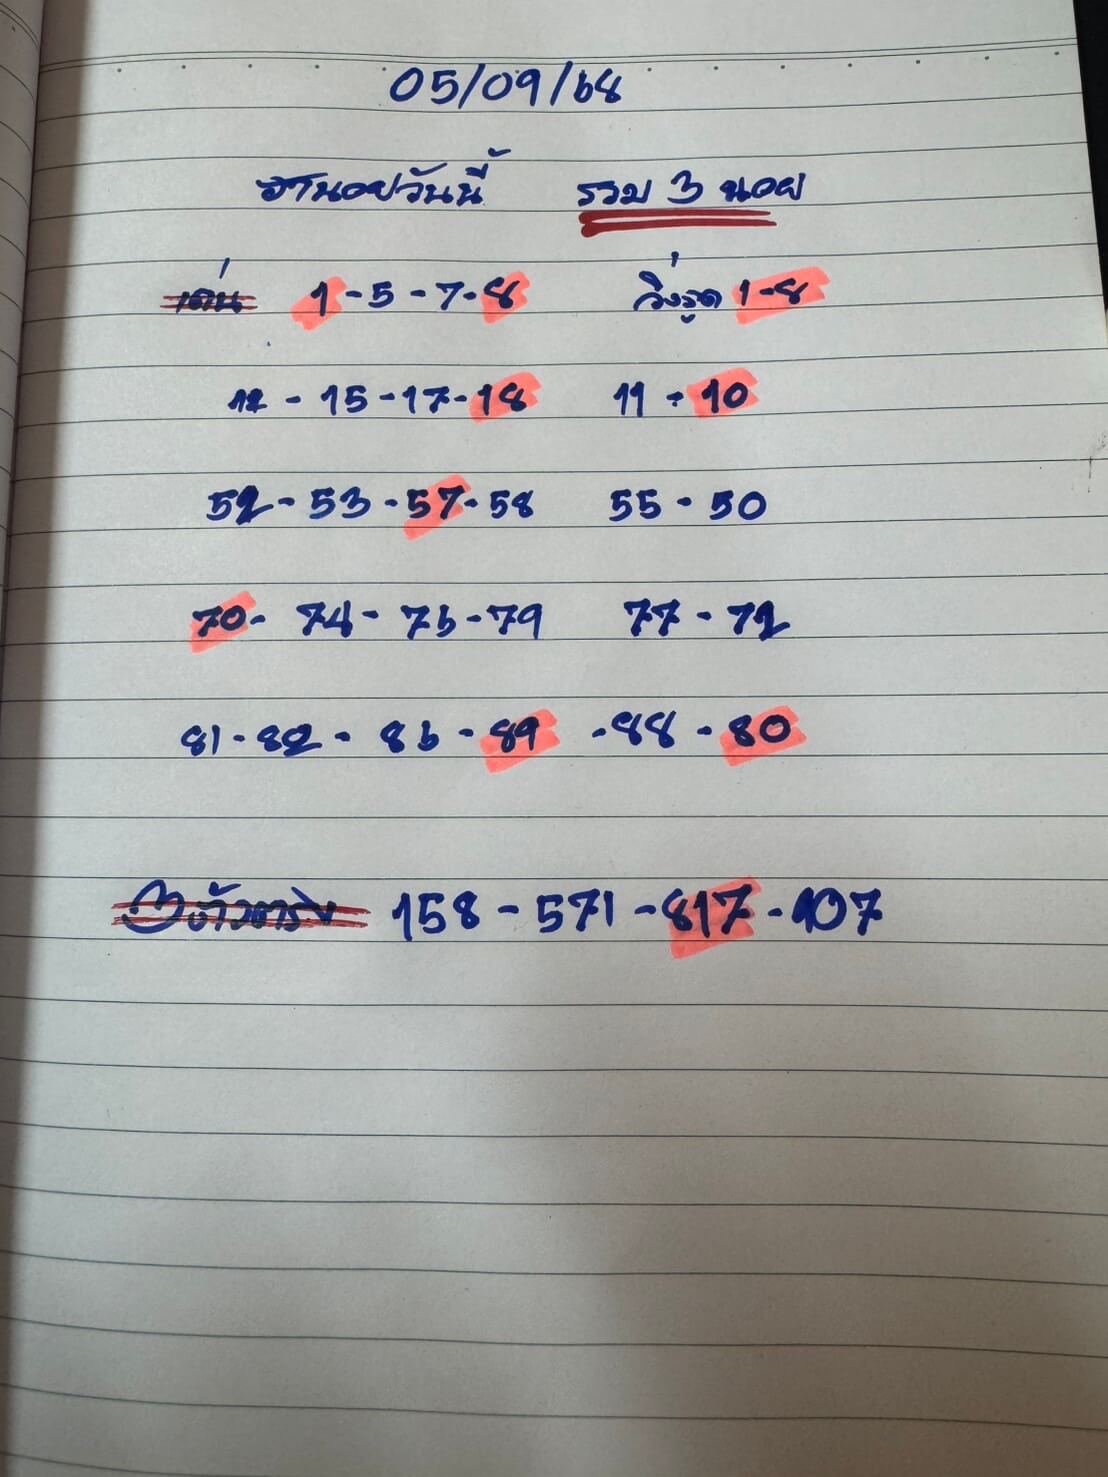 05/09/68
ฮานอยวันนี้ รวม 3 นอย
เด่น 1-5-7-8 วิ่งรูด 1-8
12-15-17-18 11-10
52-53-57-58 55-50
70-74-76-79 77-72
81-82-86-89-88-80
3ตัวตรง 158-571-817-107